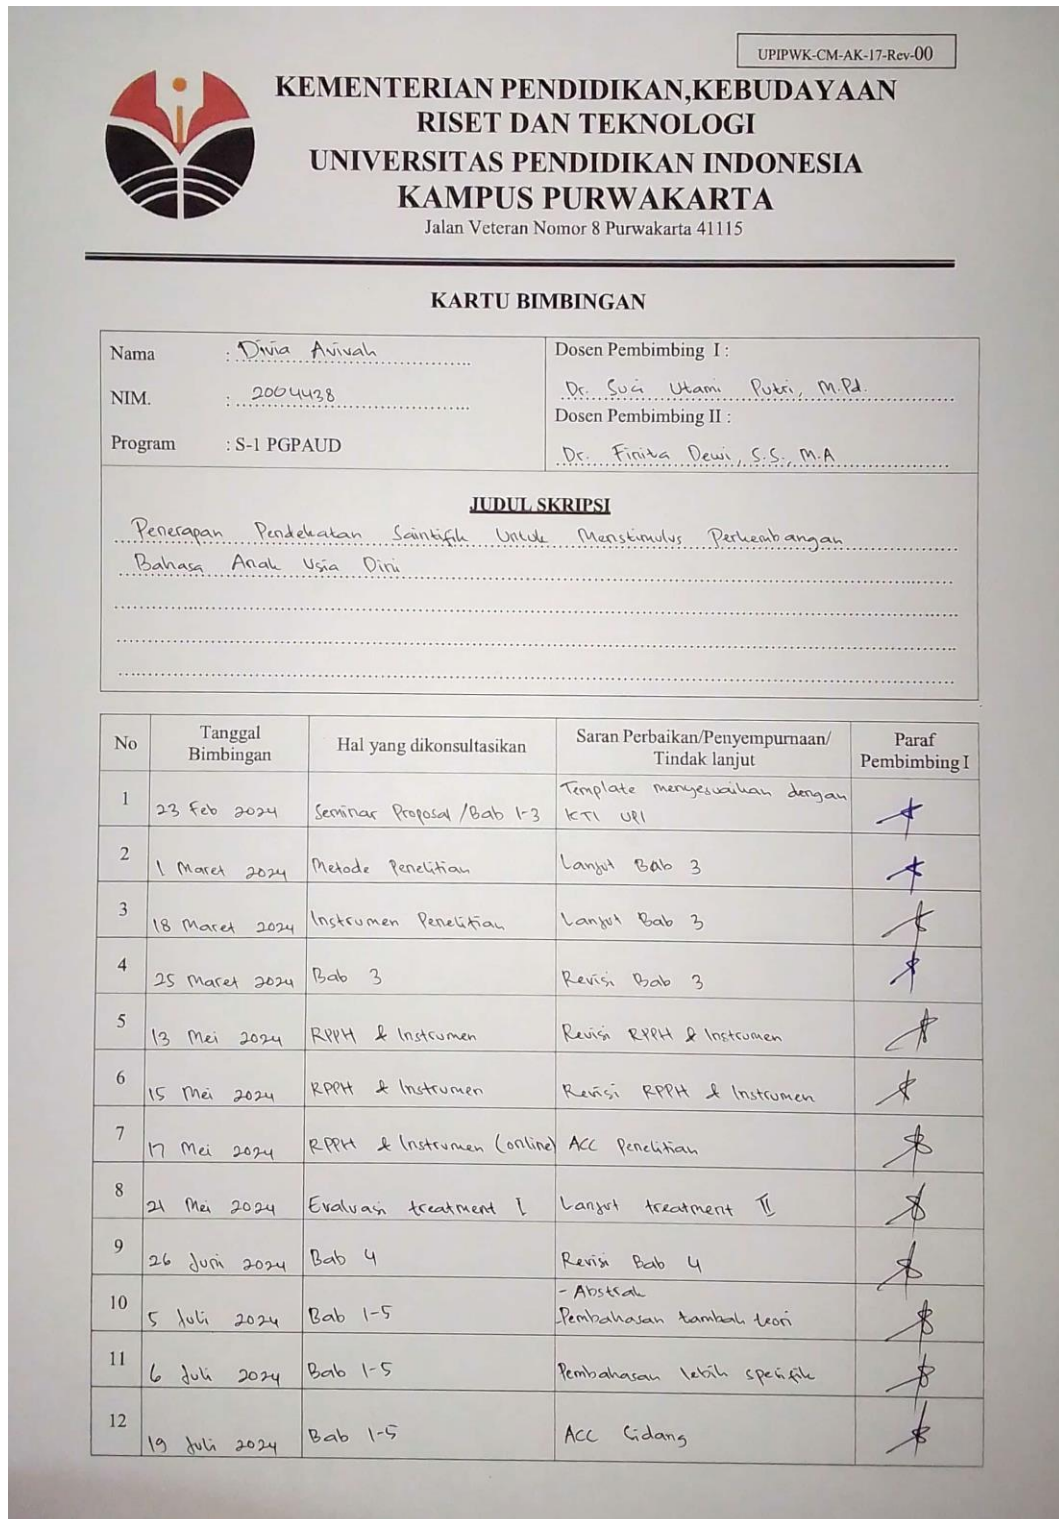 UPIPWK-CM-AK-17-Rev-00
KEMENTERIAN PENDIDIKAN,KEBUDAYAAN
RISET DAN TEKNOLOGI
UNIVERSITAS PENDIDIKAN INDONESIA
KAMPUS PURWAKARTA
Jalan Veteran Nomor 8 Purwakarta 41115
KARTU BIMBINGAN
Nama : Divia Avivah
NIM. : 2004438
Program : S-1 PGPAUD
Dosen Pembimbing I :
Dr. Suci Utami Putri, M.Pd.
Dosen Pembimbing II :
Dr. Finita Dewi, S.S., M.A
JUDUL SKRIPSI
Penerapan Pendekatan Saintifik Untuk Menstimulus Perkembangan
Bahasa Anak Usia Dini
No Tanggal Bimbingan Hal yang dikonsultasikan Saran Perbaikan/Penyempurnaan/ Tindak lanjut Paraf Pembimbing I
1 23 Feb 2024 Seminar Proposal /Bab 1-3 Template menyesuaikan dengan KTI UPI
2 1 Maret 2024 Metode Penelitian Lanjut Bab 3
3 18 Maret 2024 Instrumen Penelitian Lanjut Bab 3
4 25 Maret 2024 Bab 3 Revisi Bab 3
5 13 Mei 2024 RPPH & Instrumen Revisi RPPH & Instrumen
6 15 Mei 2024 RPPH & Instrumen Revisi RPPH & Instrumen
7 17 Mei 2024 RPPH & Instrumen (online) ACC Penelitian
8 21 Mei 2024 Evaluasi treatment I Lanjut treatment II
9 26 Juni 2024 Bab 4 Revisi Bab 4
10 5 Juli 2024 Bab 1-5 - Abstrak - Pembahasan tambah teori
11 6 Juli 2024 Bab 1-5 Pembahasan lebih spesifik
12 19 Juli 2024 Bab 1-5 ACC Sidang